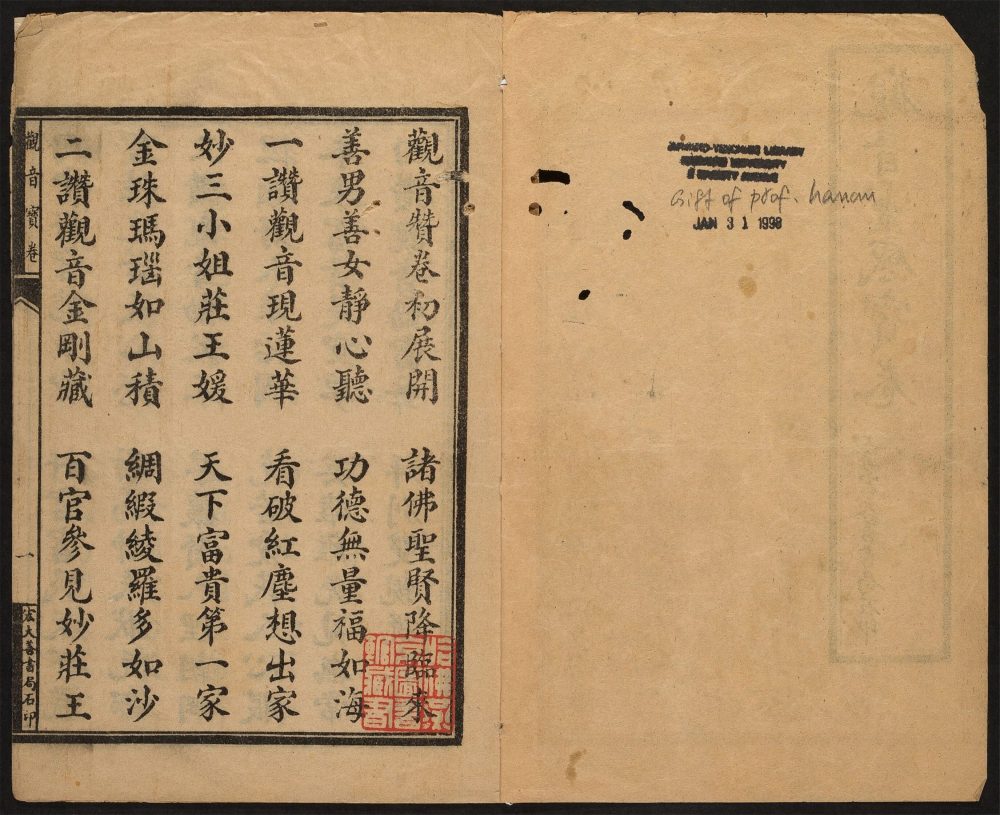 觀音讚卷初展開 諸佛聖賢降臨來
善男善女靜心聽 功德無量福如海
一讚觀音現蓮華 看破紅塵想出家
妙三小姐莊王媛 天下富貴第一家
金珠瑪瑙如山積 綢緞綾羅多如沙
二讚觀音金剛藏 百官參見妙莊王
觀音寶卷
一
宏大善書局石印
HARVARD-YENCHING LIBRARY
HARVARD UNIVERSITY
Gift of prof. hanan
JAN 31 1998